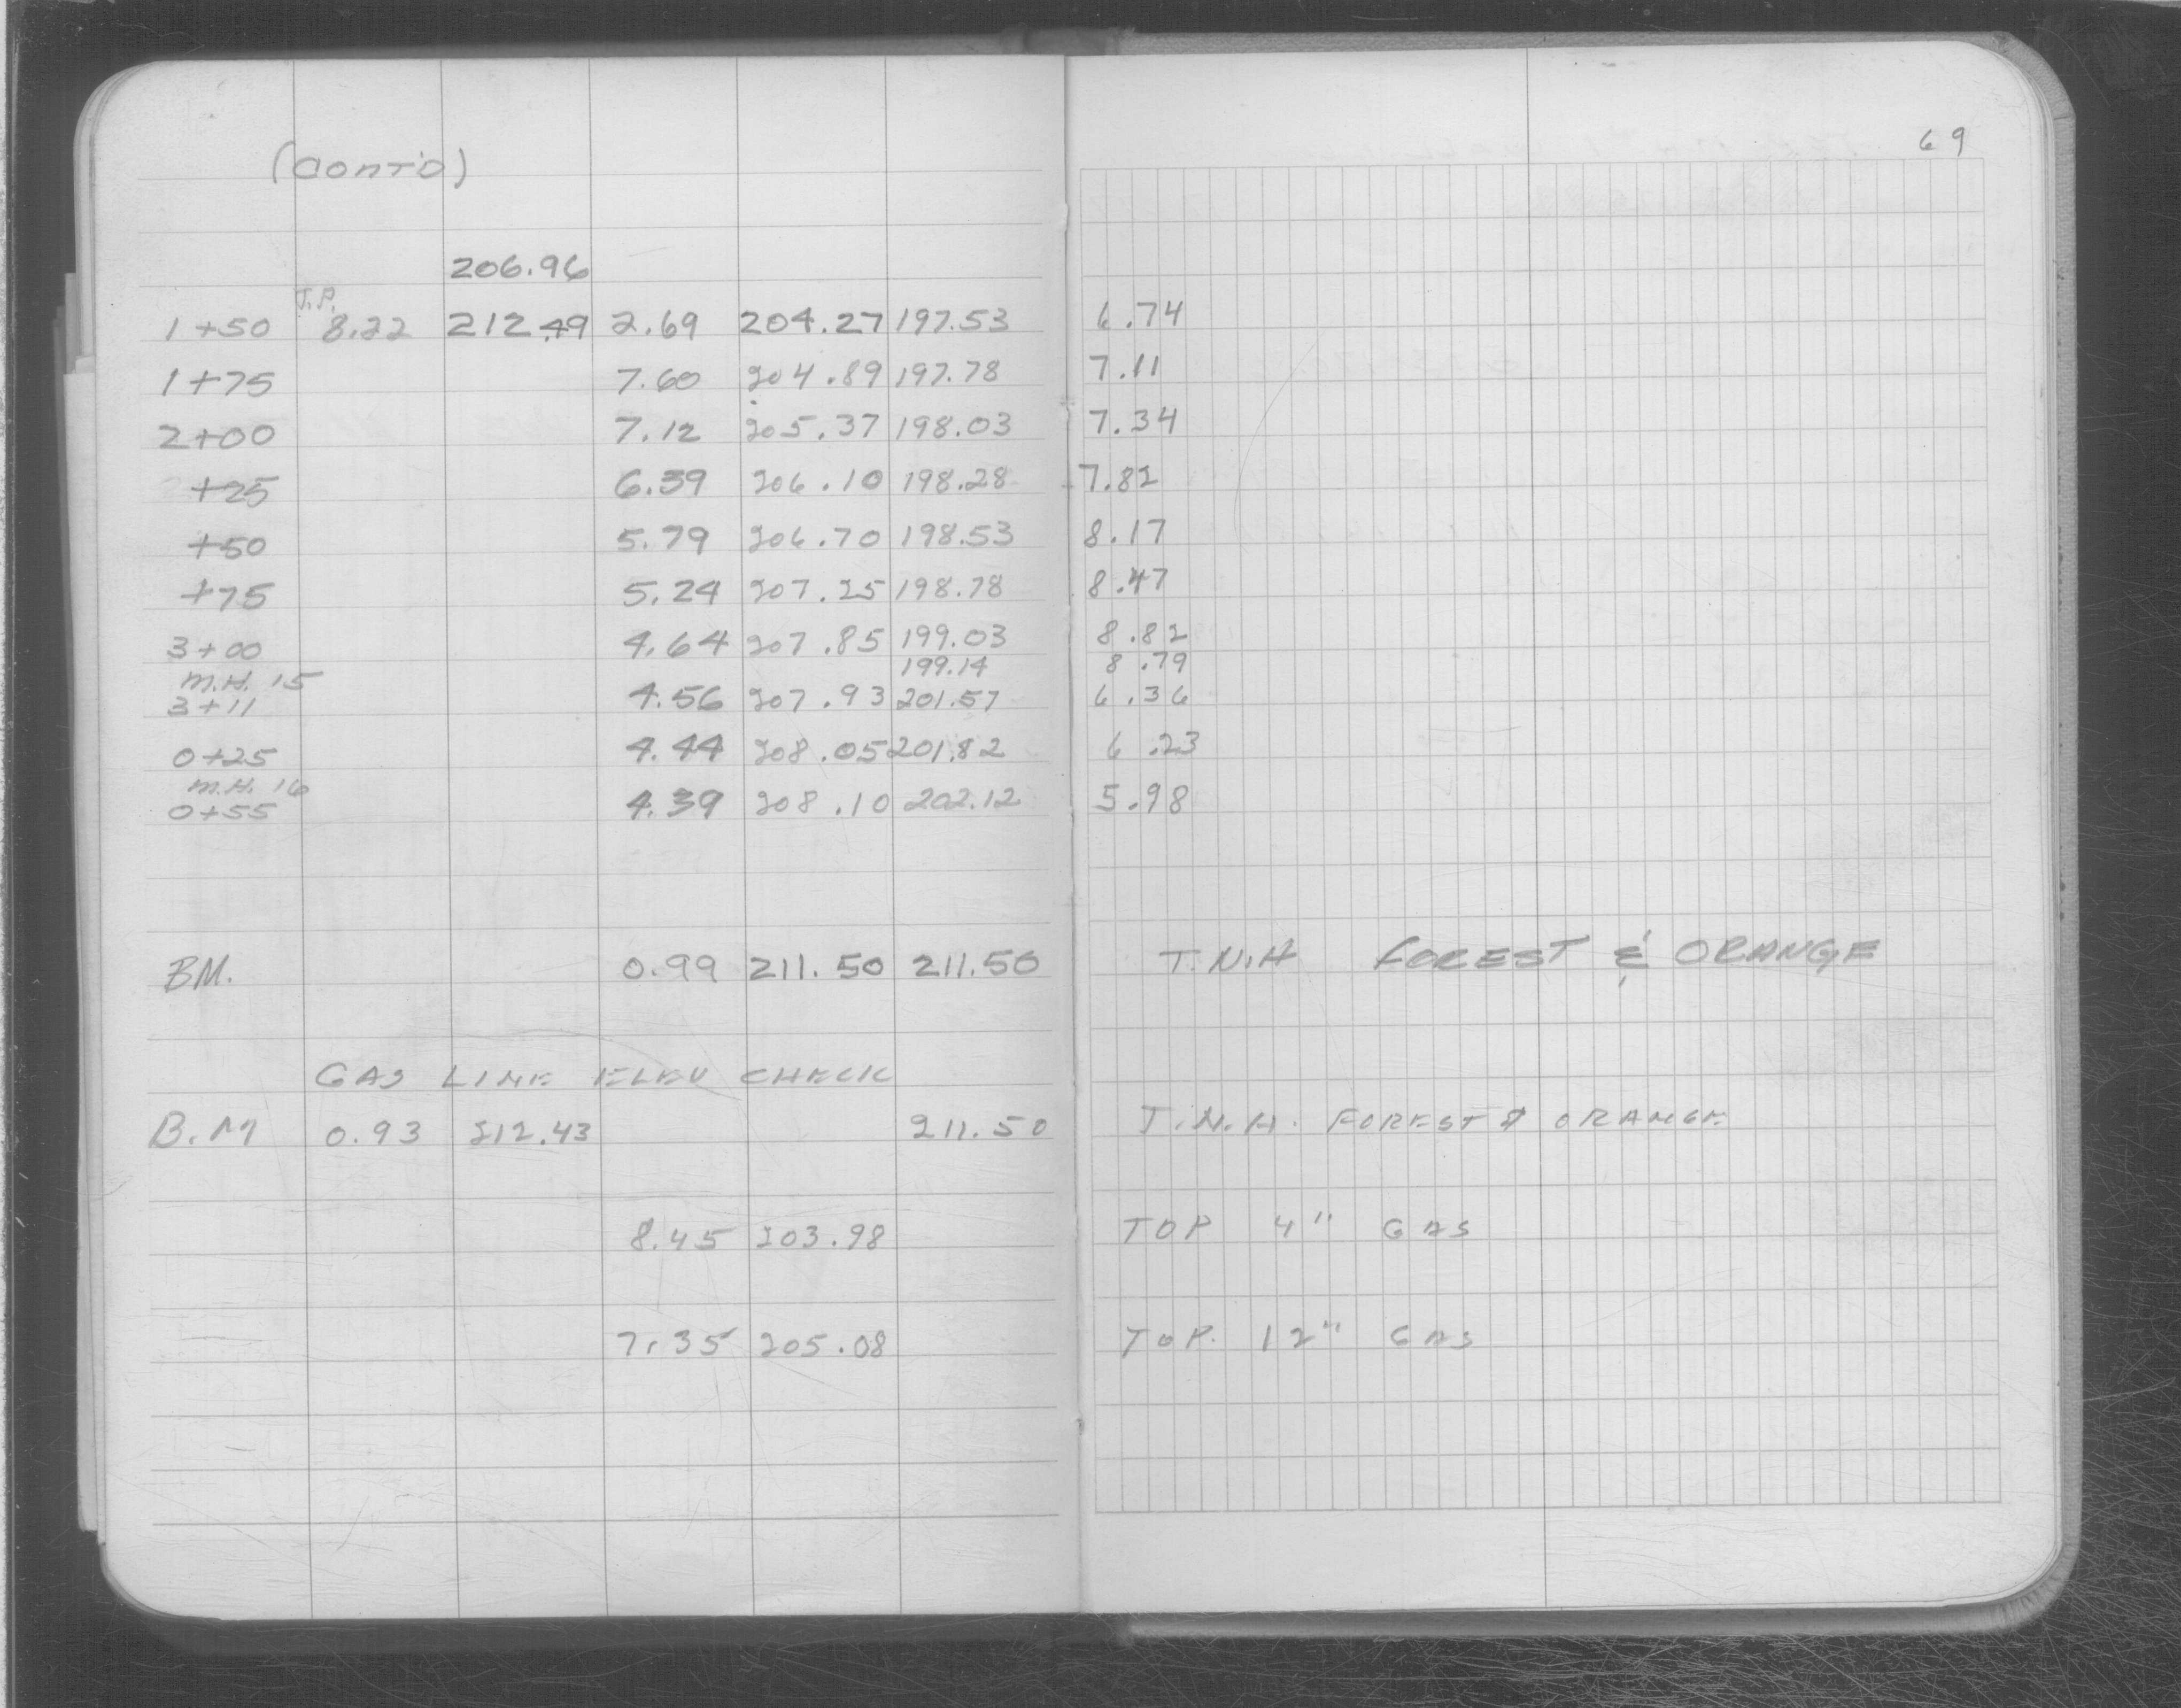 69
(CONT'D)
206.96
T.P.
1+50 8.22 212.49 2.69 204.27 197.53 6.74
1+75 7.60 204.89 197.78 7.11
2+00 7.12 205.37 198.03 7.34
+25 6.39 206.10 198.28 7.82
+50 5.79 206.70 198.53 8.17
+75 5.24 207.25 198.78 8.47
3+00 4.64 207.85 199.03 8.82
199.14 8.79
M.H. 15
3+11 4.56 207.93 201.57 6.36
0+25 4.44 208.05 201.82 6.23
M.H. 16
0+55 4.39 208.10 202.12 5.98
BM. 0.99 211.50 211.50 T.N.H FOREST & ORANGE
GAS LINE ELEV CHECK
B.M 0.93 212.43 211.50 T.N.H. FOREST & ORANGE
8.45 203.98 TOP 4" GAS
7.35 205.08 TOP. 12" GAS